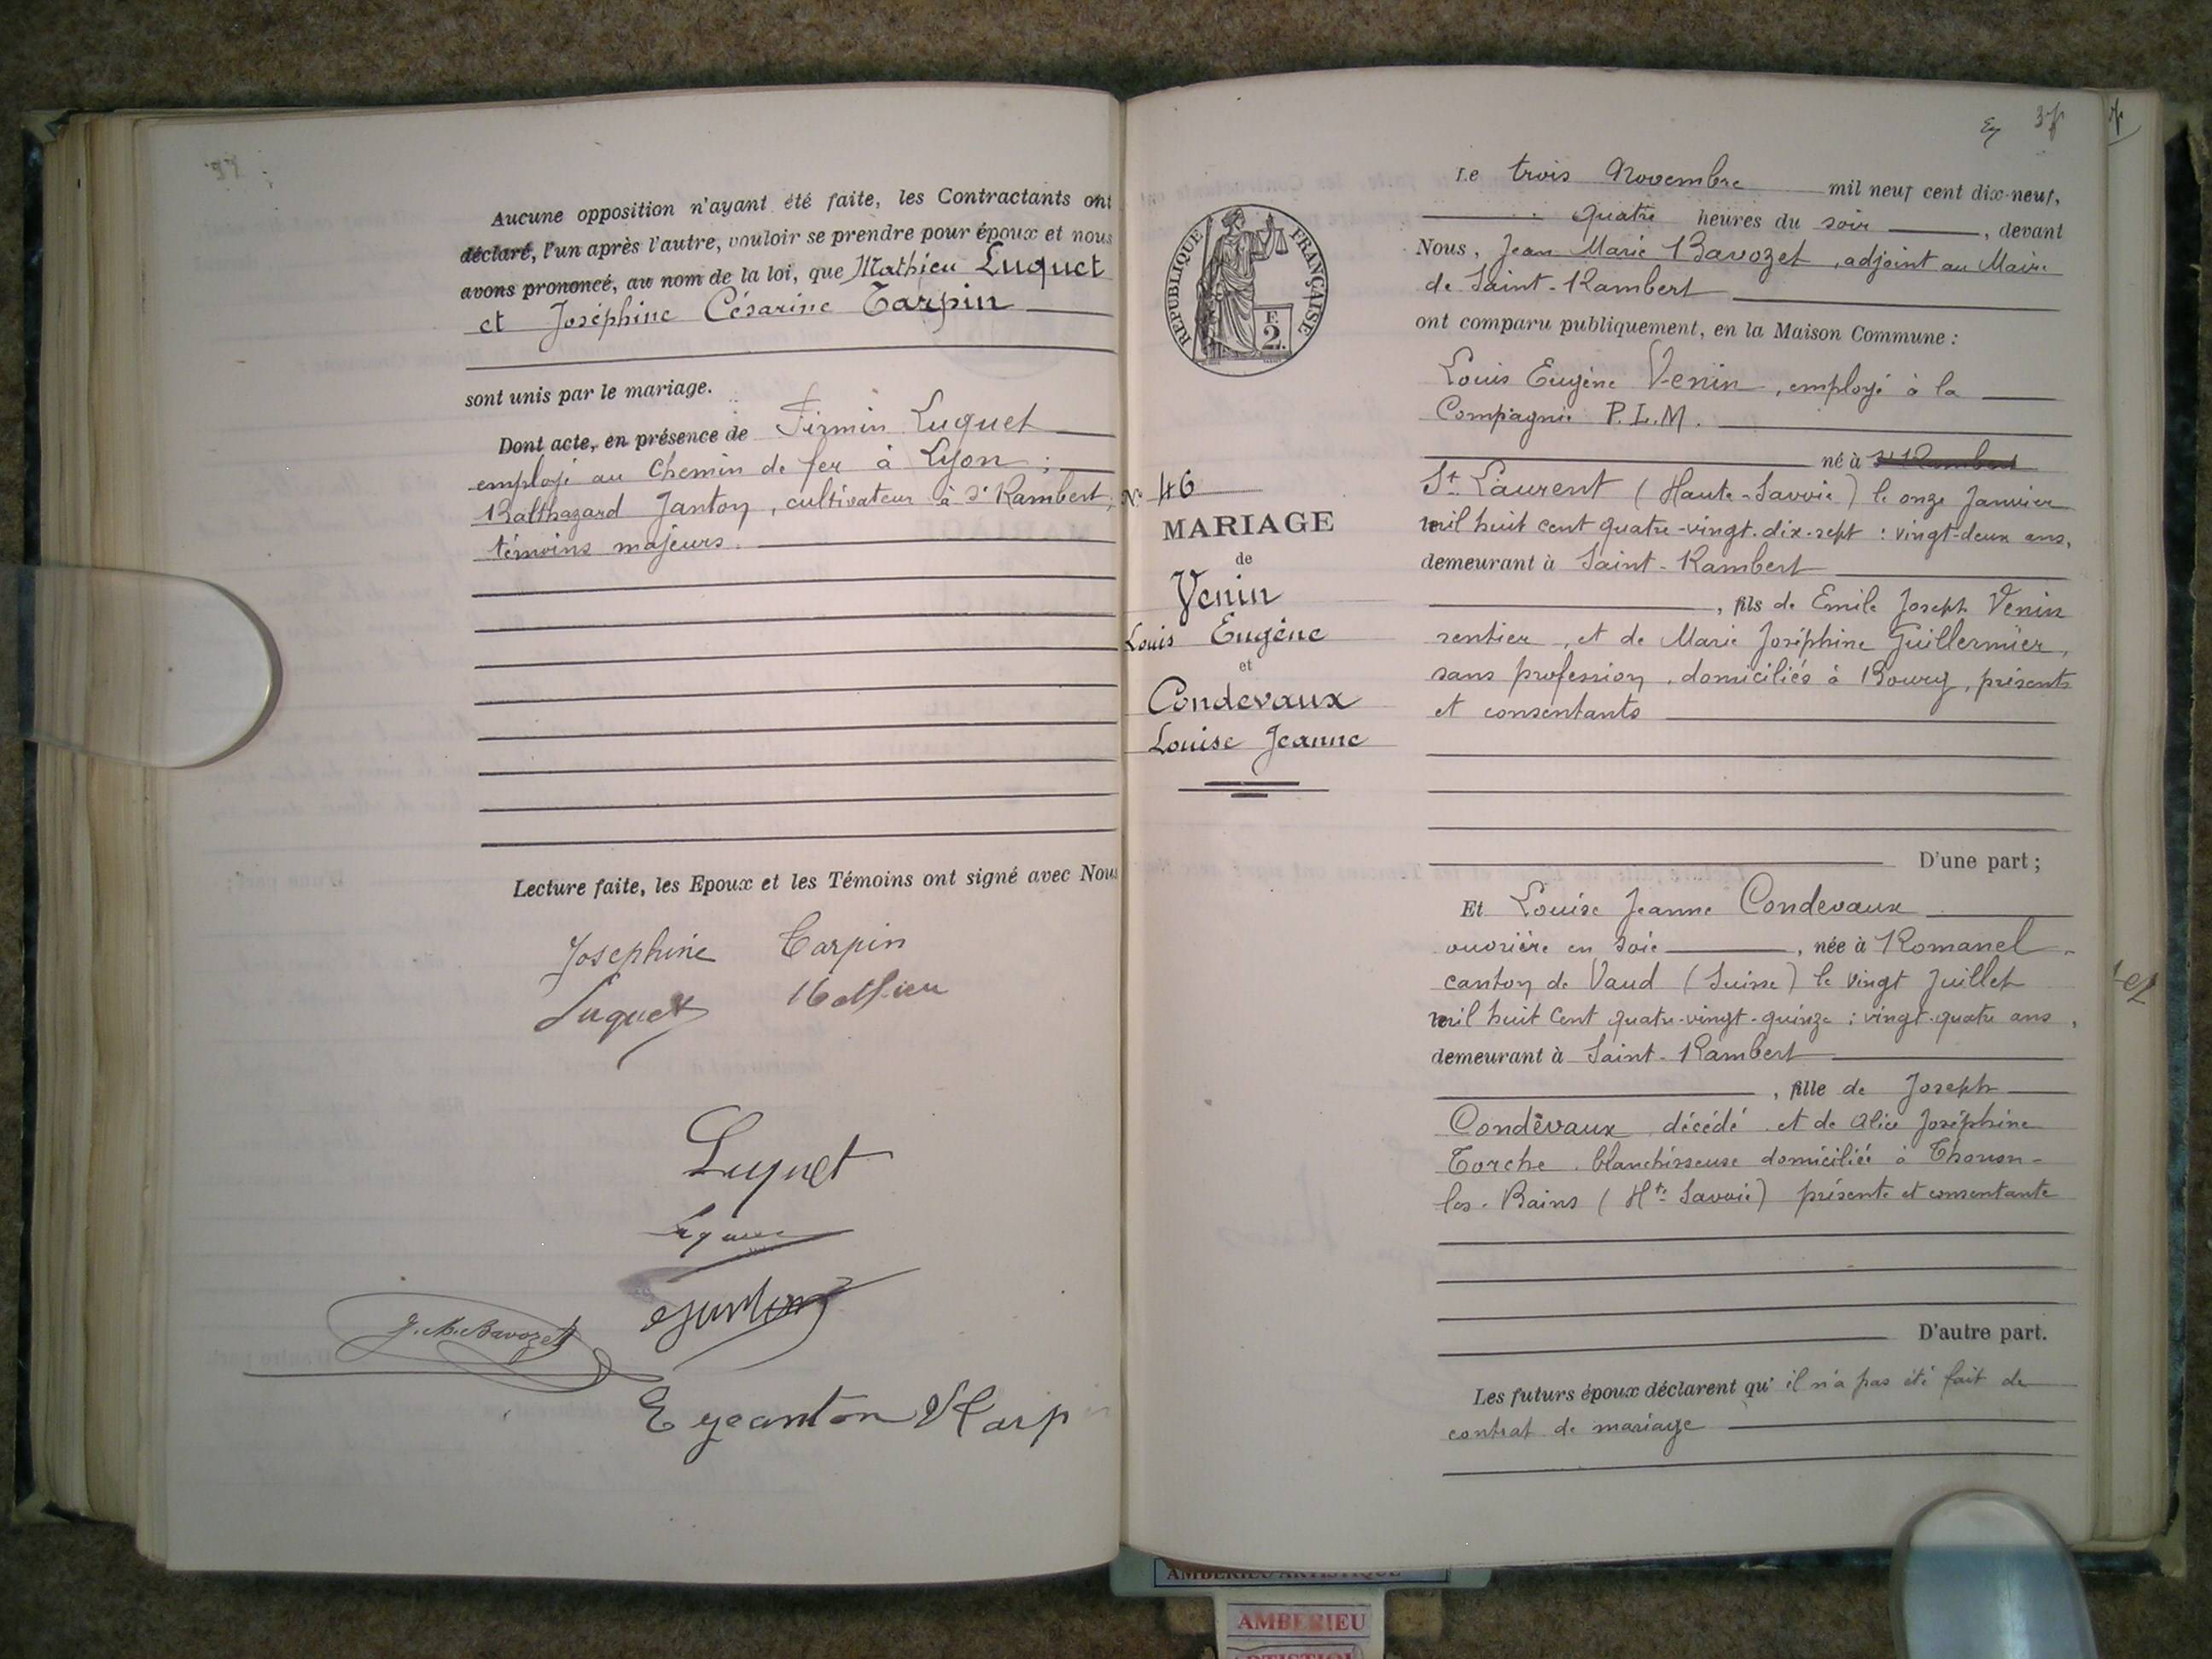 Aucune opposition n'ayant été faite, les Contractants ont
déclaré, l'un après l'autre, vouloir se prendre pour époux et nous
avons prononcé, au nom de la loi, que Mathieu Luquet
et Joséphine Césarine Tarpin
sont unis par le mariage.
Dont acte, en présence de Firmin Luquet
employé au Chemin de fer à Lyon ;
Balthazard Janton, cultivateur à St Rambert,
témoins majeurs.
Lecture faite, les Epoux et les Témoins ont signé avec Nous
Josephine Tarpin
Luquet Mathieu
Luquet
J. M. Bavozet
E Jeanton Tarpin
Le trois Novembre mil neuf cent dix-neuf,
quatre heures du soir, devant
Nous, Jean Marie Bavozet, adjoint au Maire
de Saint-Rambert
ont comparu publiquement, en la Maison Commune :
REPUBLIQUE FRANÇAISE
F.
2.
Louis Eugène Venin, employé à la
Compagnie P.L.M.
né à St Rambert
St Laurent (Haute-Savoie) le onze Janvier
mil huit cent quatre-vingt-dix-sept : vingt-deux ans,
demeurant à Saint-Rambert
, fils de Emile Joseph Venin
rentier, et de Marie Joséphine Guillermier,
sans profession, domiciliés à Bourg, présents
et consentants
D'une part ;
N° 46
MARIAGE
de
Venin
Louis Eugène
et
Condevaux
Louise Jeanne
Et Louise Jeanne Condevaux
ouvrière en soie, née à Romanel
canton de Vaud (Suisse) le vingt Juillet
mil huit cent quatre-vingt-quinze : vingt-quatre ans,
demeurant à Saint-Rambert
, fille de Joseph
Condevaux décédé et de Alice Joséphine
Torche, blanchisseuse domiciliée à Thonon-
les-Bains (Hte Savoie) présente et consentante
D'autre part.
Les futurs époux déclarent qu'il n'a pas été fait de
contrat de mariage
AMBERIEU ARTISTIQUE
AMBERIEU